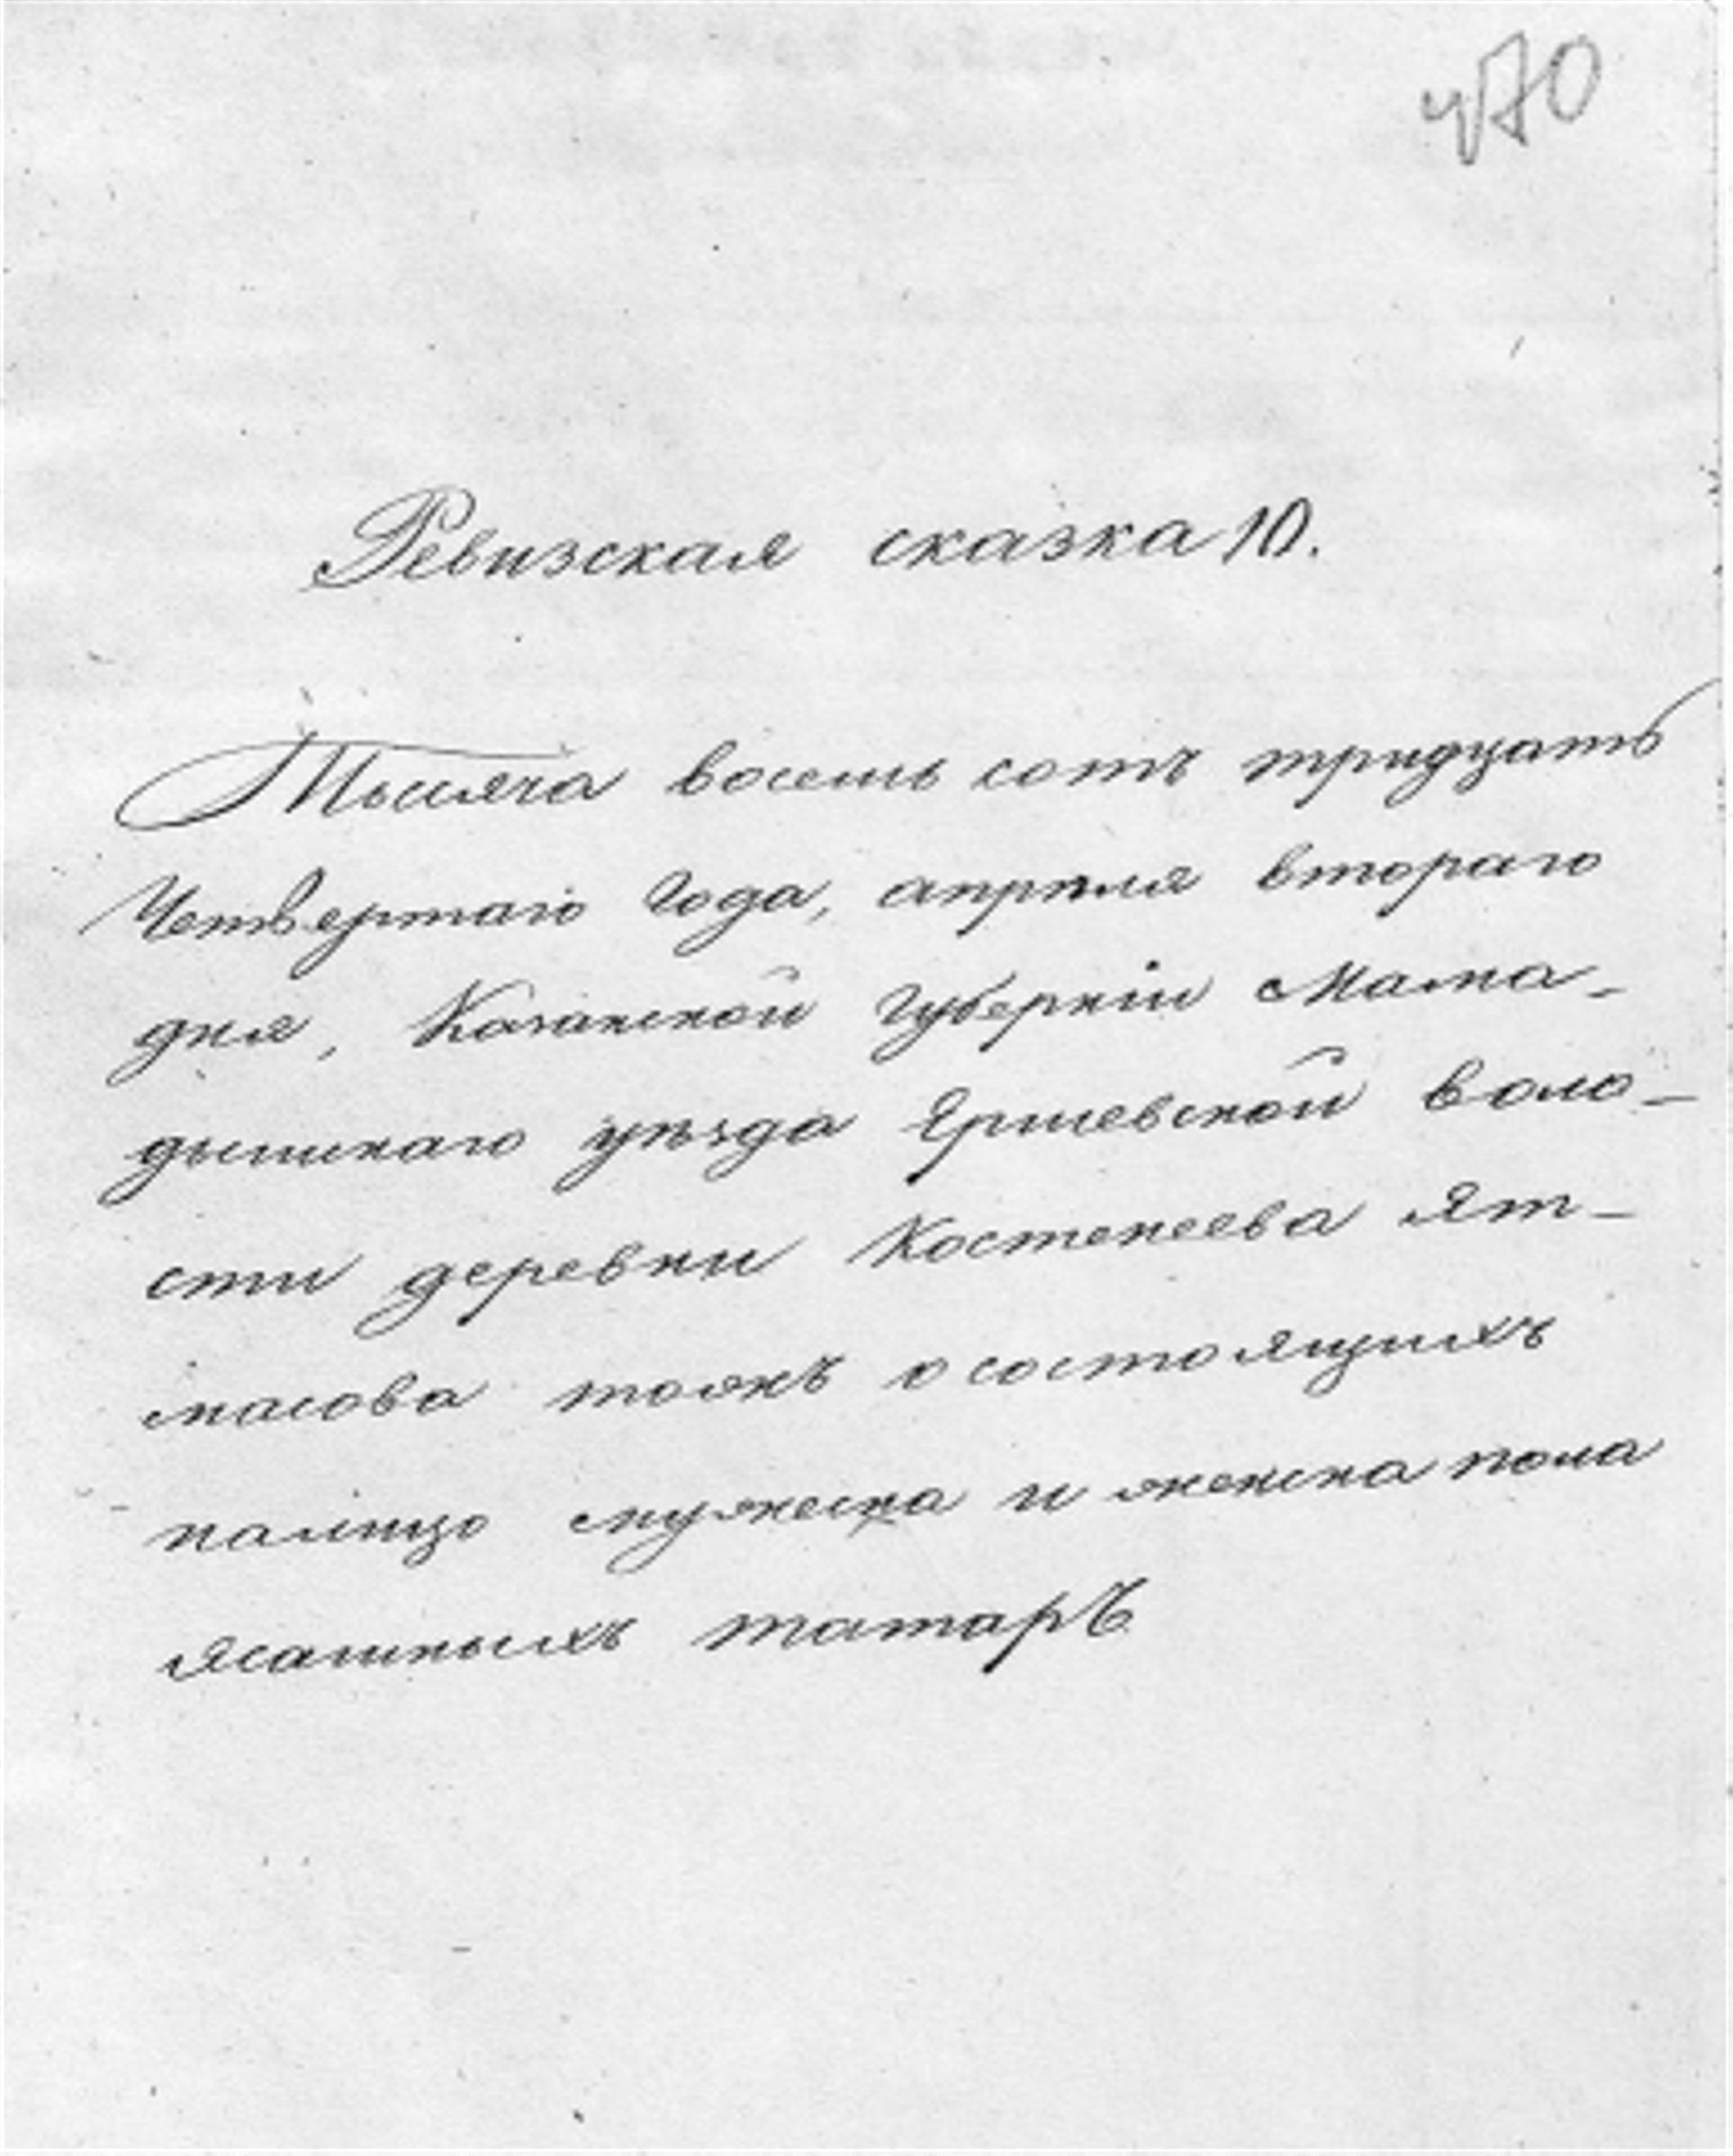 470
Ревизская сказка 10.
Тысяча восемь сотъ тридцать
Четвертаго года, апрѣля втораго
дня, Казанской Губерніи Мама-
дышскаго уѣзда Ершевской воло-
сти деревни Костенеева Ят-
масова тожъ о состоящихъ
налицо мужеска и женска пола
ясашныхъ татаръ